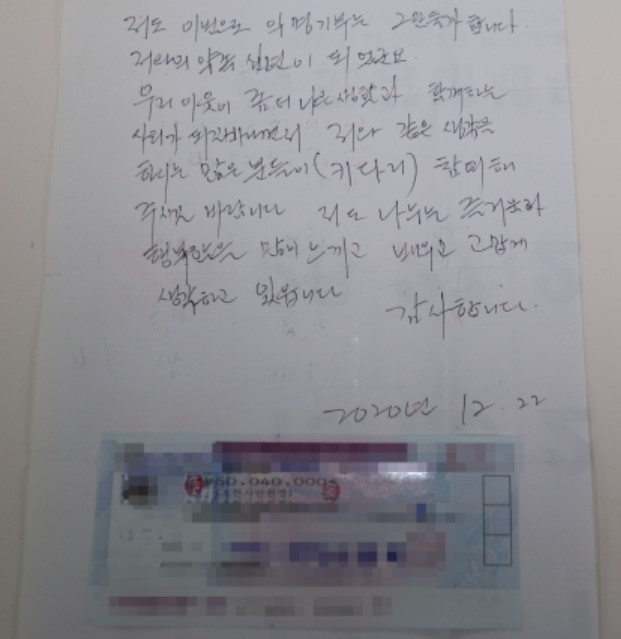 저도 이번으로 익명기부는 그만둘까 합니다.
저와의 약속 십년이 되었군요
우리 이웃이 좀더 나은 생활과 함께하는
사회가 되길바라면서 저와 같은 생각을
하시는 많은 분들이(키다리) 함께해
주시길 바랍니다 저도 나누는 즐거움과
행복함을 많이 느끼고 배우고 고맙게
생각하고 있습니다
감사합니다.
2020년 12. 22
₩50.040.000